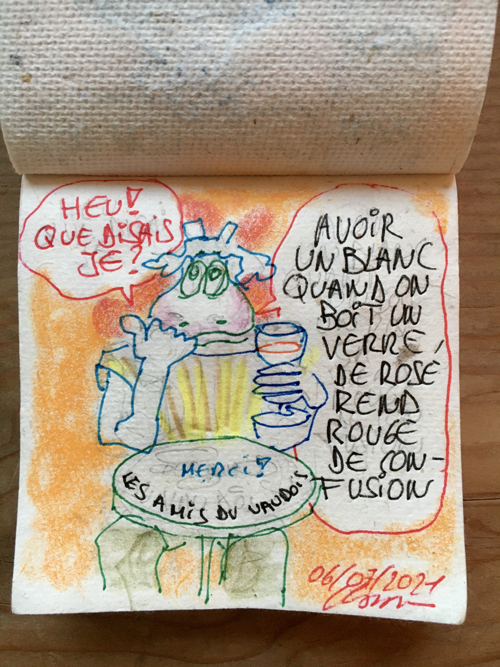 HEU!
QUE DISAIS
JE?
AVOIR
UN BLANC
QUAND ON
BOIT UN
VERRE
DE ROSÉ
REND
ROUGE
DE CON-
FUSION
MERCI!
LES AMIS DU VAUDOIS
06/07/2021